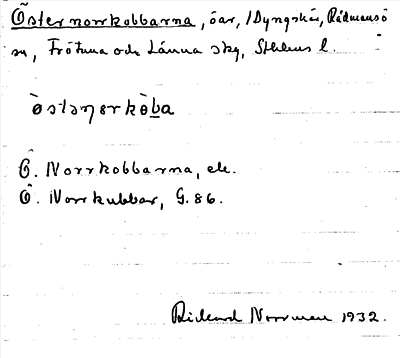 Östernorrkobbarna, öar, /Dyngskär, Rådmansö
sn, Frötuna och Länna skg, Sthlms l.
òstəŋerkòba
Ö. Norrkobbarna, ek.
Ö. Norrkubbar, G. 86.
Rickard Norrman 1932.